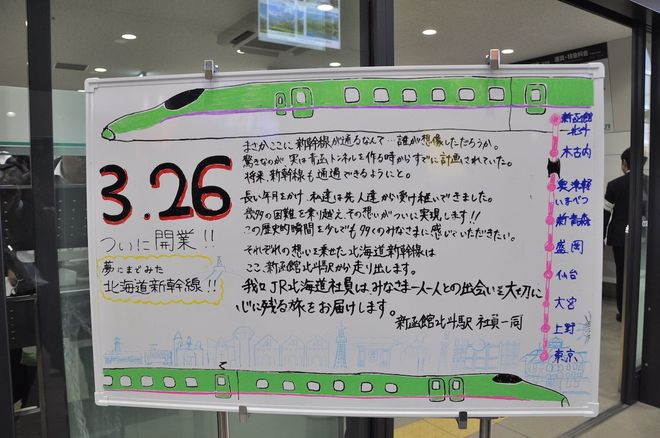 まさかここに新幹線が通るなんて…誰が想像しただろうか。
驚きなのが、実は青函トンネルを作る時からすでに計画されていた。
将来、新幹線も通過できるようにと。
長い年月をかけ、私達は先人達から受け継いできました。
幾多の困難を乗り越え、その想いがついに実現します!!
この歴史的瞬間を少しでも多くのみなさまに感じていただきたい。
それぞれの想いを乗せた北海道新幹線は
ここ、新函館北斗駅から走り出します。
我らJR北海道社員は、みなさま一人一人との出会いを大切に
心に残る旅をお届けします。
新函館北斗駅 社員一同
3.26
ついに開業!!
夢にまでみた
北海道新幹線!!
新函館
北斗
木古内
奥津軽
いまべつ
新青森
盛岡
仙台
大宮
上野
東京